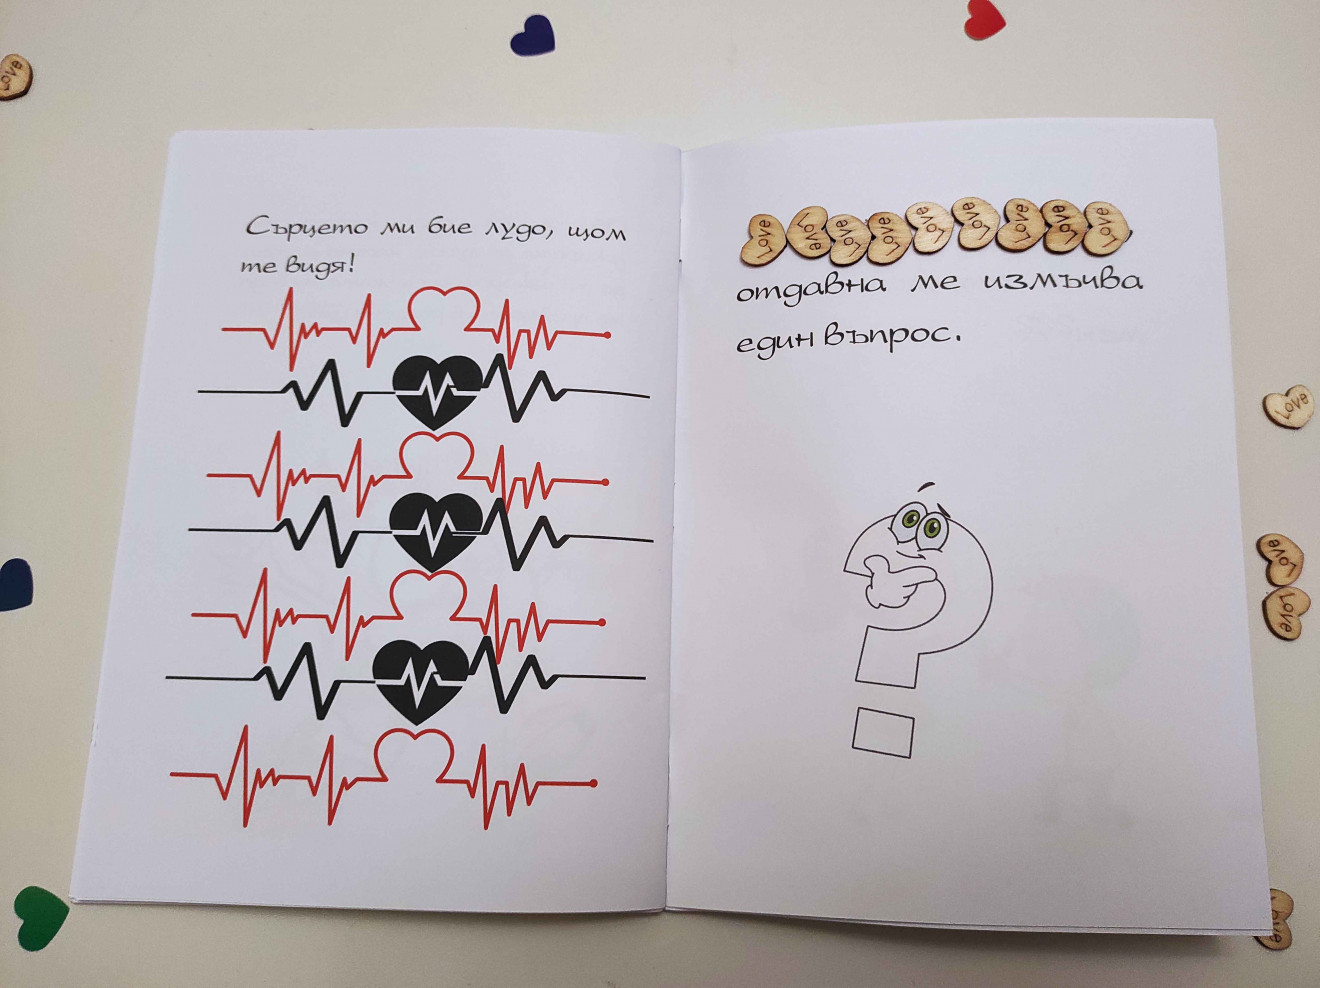 Сърцето ми бие лудо, щом
те видя!
отдавна ме измъчва
един въпрос.
Love
Love
Love
Love
Love
Love
Love
Love
Love
Love
Love
Love
Love
Love